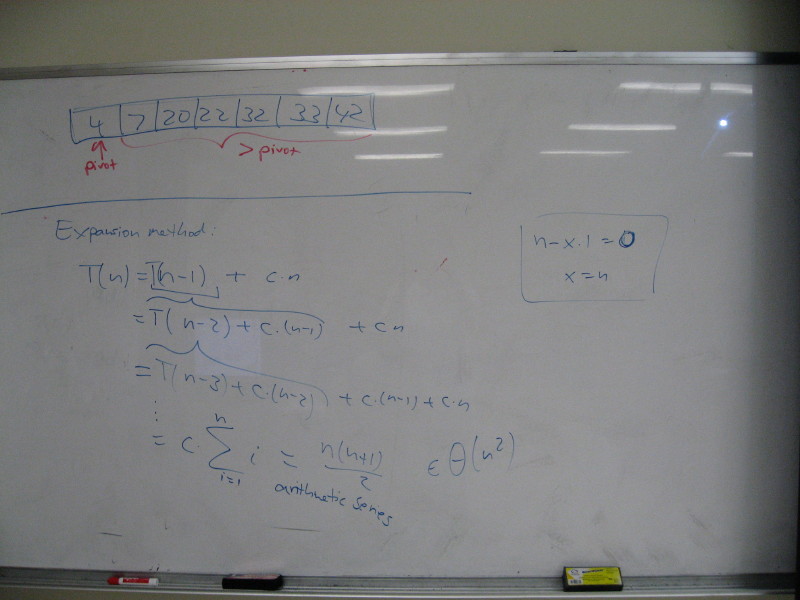 4 | 7 | 20 | 22 | 32 | 33 | 42
pivot
> pivot
Expansion method:
T(n) = T(n-1) + c·n
= T(n-2) + c·(n-1) + cn
= T(n-3) + c·(n-2) + c·(n-1) + c·n
⋮
= c· ∑_{i=1}^{n} i = n(n+1)/2 ∈ Θ(n²)
arithmetic series
n-x·1 = 0
x = n